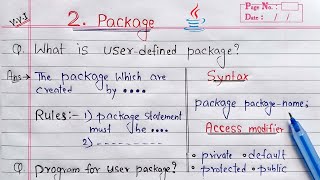 v.v.I
2. Package
Java
Page No.:
Date: / /
Q. What is user-defined package?
Ans→ The package which are
created by ....
Rules:- 1) package statement
must be ....
2) ---------
Syntax
package package-name;
Access modifier
• private • default
• protected • public
Q. Program for user package?